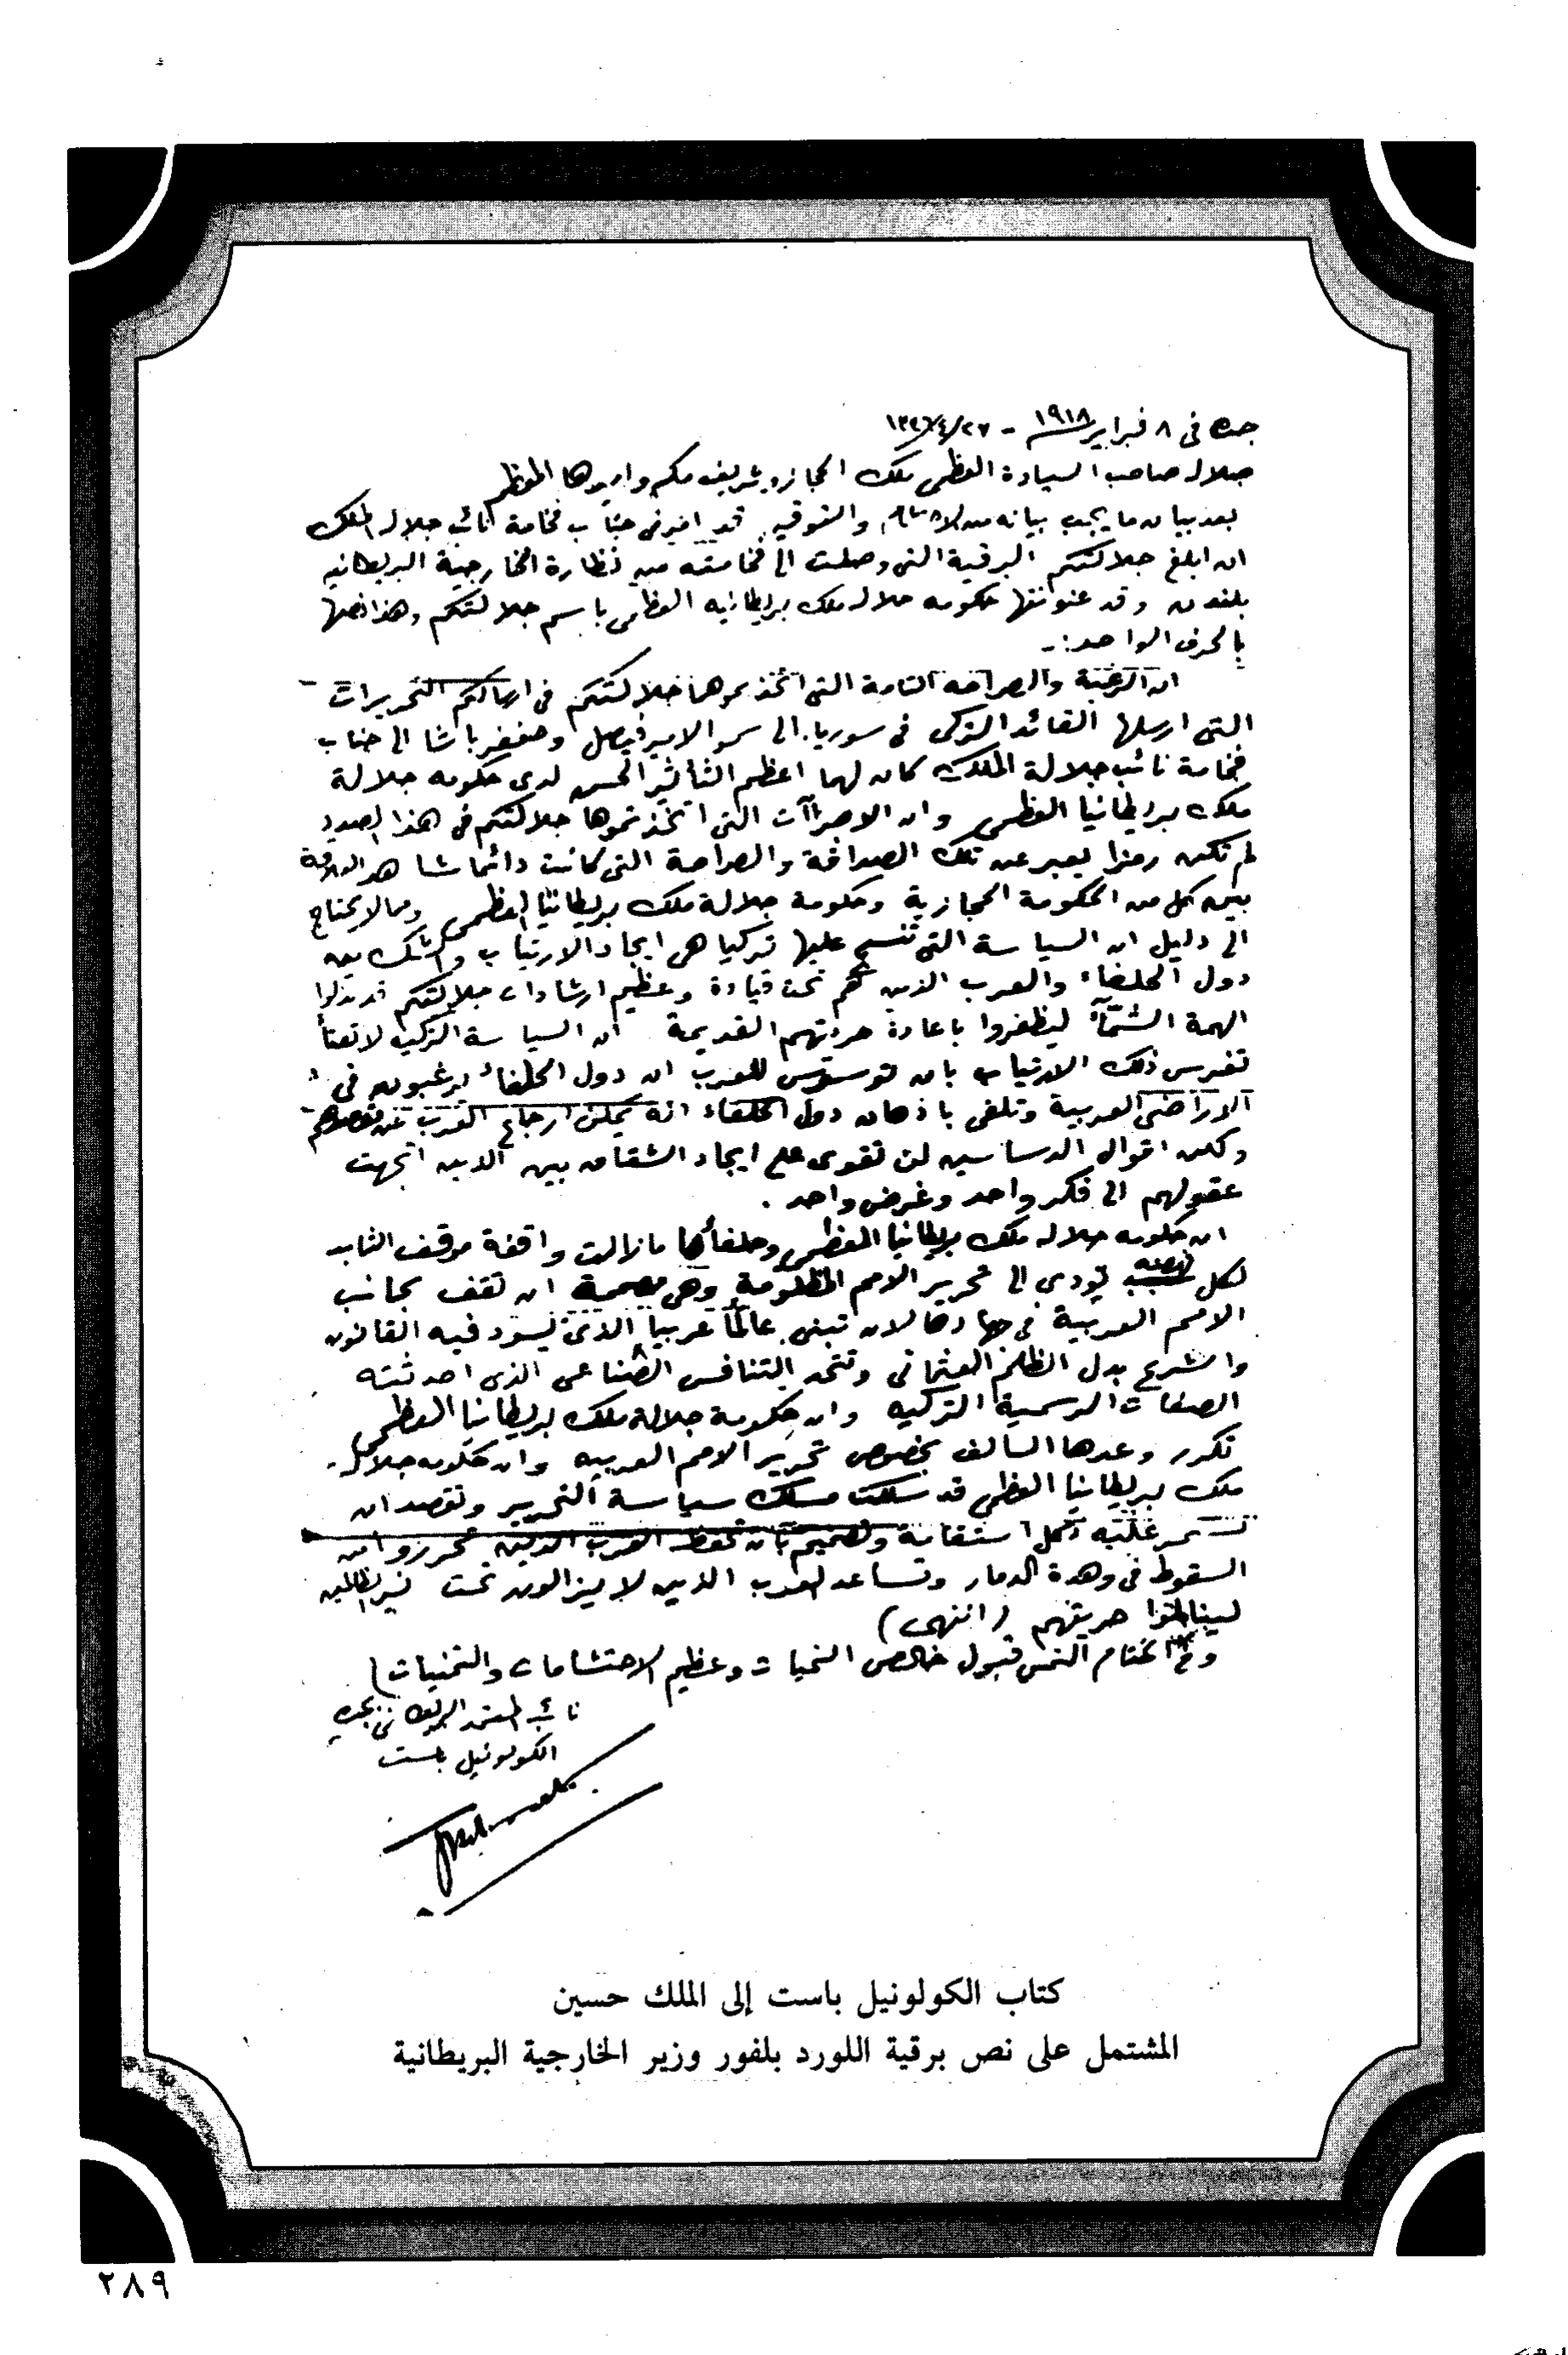 جده في ٨ فبراير ١٩١٨ - ٢٧/٤/١٣٣٦
جلالة صاحب السيادة العظمى ملك الحجاز وشريف مكه واميرها المعظم
بعد بيان ما يجب بيانه من الاحتشام والتوقير قد امرني جناب فخامة نائب جلالة الملك
ان ابلغ جلالتكم البرقية التي وصلت الى فخامته من نظارة الخارجية البريطانيه
بلندن وقد عنونتها حكومه جلالة ملك بريطانيه العظمى باسم جلالتكم وهذا نصها
بالحرف الواحد :-
ان الرغبة والصراحه التامة التي اتخذتموها جلالتكم في ارسالكم التحريرات
التي ارسلها القائد التركي في سوريا الى سمو الامير فيصل وجعفر باشا الى جناب
فخامة نائب جلالة الملك كان لهما اعظم التأثير الحسن لدى حكومه جلالة
ملك بريطانيا العظمى وان الاجرآات التي اتخذتموها جلالتكم في هذا الصدد
لم تكن رمزا يعبر عن تلك الصداقة والصراحة التي كانت دائما شاهد العلاقة
بين كل من الحكومة الحجازية وحكومة جلالة ملك بريطانيا العظمى ومما لا يحتاج
الى دليل ان السياسة التي تنسج عليها تركيا هي ايجاد الارتياب والشك بين
دول الحلفاء والعرب الذين هم تحت قيادة وعظيم ارشادات جلالتكم قد بذلوا
الهمة الشمآء ليظفروا باعادة حريتهم القديمة ان السياسة التركيه لا تفتأ
تغرس ذلك الارتياب بان توسوس للعرب ان دول الحلفاء يرغبون في
الاراضي العربية وتلقي باذهان دول الحلفاء انه يمكن ارجاع العرب عن مقصدهم
ولكن اقوال الدساسين لن تقوى على ايجاد الشقاق بين الذين اتجهت
عقولهم الى فكر واحد وغرض واحد .
ان حكومه جلالة ملك بريطانيا العظمى وحلفائها ما زالت واقفة موقف الثابت
لكل نهضه تؤدي الى تحرير الامم المظلومة وهي مصممة ان تقف بجانب
الامم العربية في جهادها لان تبني عالماً عربيا الذي يسود فيه القانون
والشرع بدل الظلم العثماني وتتحد التنافس الصناعي الذي احدثته
الصفات الرسمية التركيه وان حكومة جلالة ملك بريطانيا العظمى
تكرر وعدها السالف بخصوص تحرير الامم العربيه وان حكومه جلالة
ملك بريطانيا العظمى قد سلكت مسلك سياسة التحرير وتقصد ان
تستمر عليه بكل استقامة وتصميم بان تحفظ العرب الذين تحرروا من
السقوط في وهدة الدمار وتساعد العرب الذين لا يزالون تحت نير الظالمين
لينالوا حريتهم (انتهى)
وفي الختام التمس قبول خالص التحيات وعظيم الاحتشامات والتمنيات
نائب المعتمد البريطاني بجده
الكولونيل باست
كتاب الكولونيل باست إلى الملك حسين
المشتمل على نص برقية اللورد بلفور وزير الخارجية البريطانية
٢٨٩